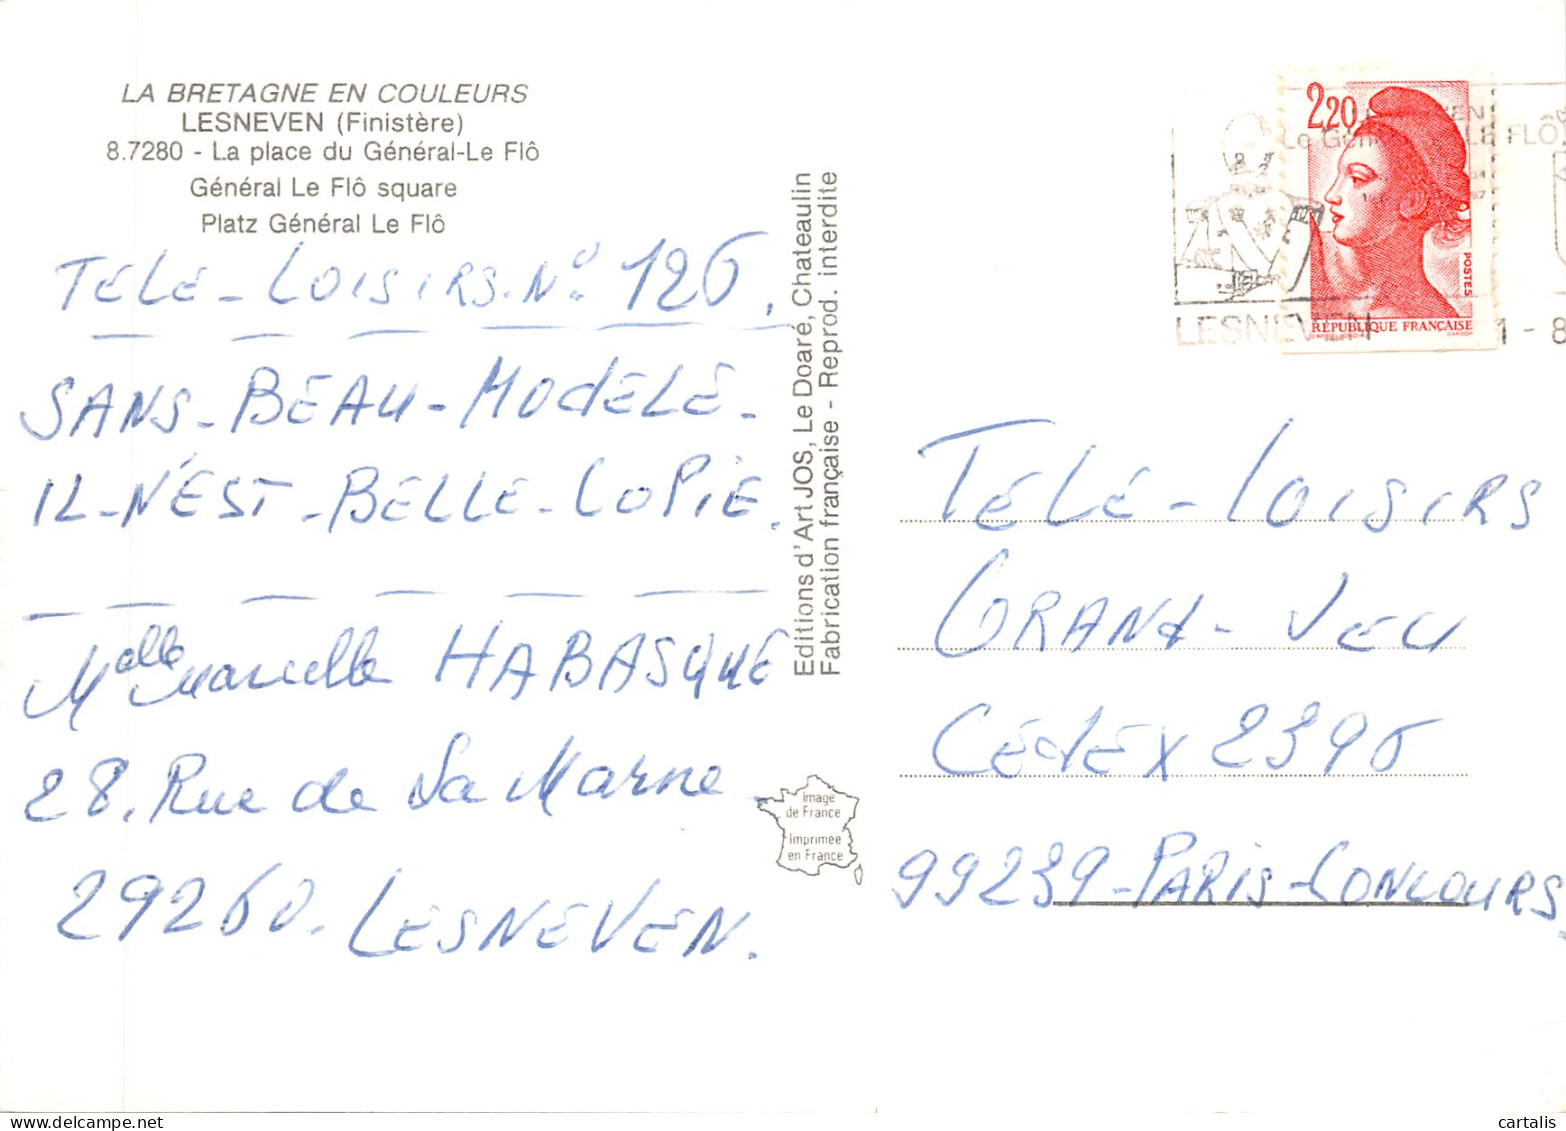 LA BRETAGNE EN COULEURS
LESNEVEN (Finistère)
8.7280 - La place du Général-Le Flô
Général Le Flô square
Platz Général Le Flô
TELE-LOISIRS.N° 126.
SANS-BEAU-MODELE-
IL-N'EST-BELLE-COPIE.
Melle Marcelle HABASQUE
28. Rue de La Marne -
29260. LESNEVEN.
Editions d'Art JOS, Le Doaré, Chateaulin
Fabrication française - Reprod. interdite
Image
de France
Imprimée
en France
2,20
POSTES
RÉPUBLIQUE FRANÇAISE
LE FLÔ
LESNEVEN
1 - 8
TELE-LOISIRS
GRAND-JEU
CEdEX 2396
99239-PARIS-CONCOURS.
cartalis